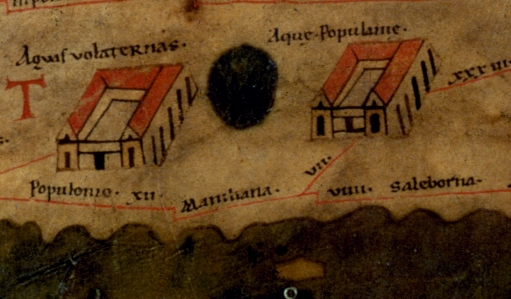 Aquas volaternas.
Aque Populanie.
T
XXXIII
VII.
Populonio. XII. Manliana. VIIII. Saleborna.